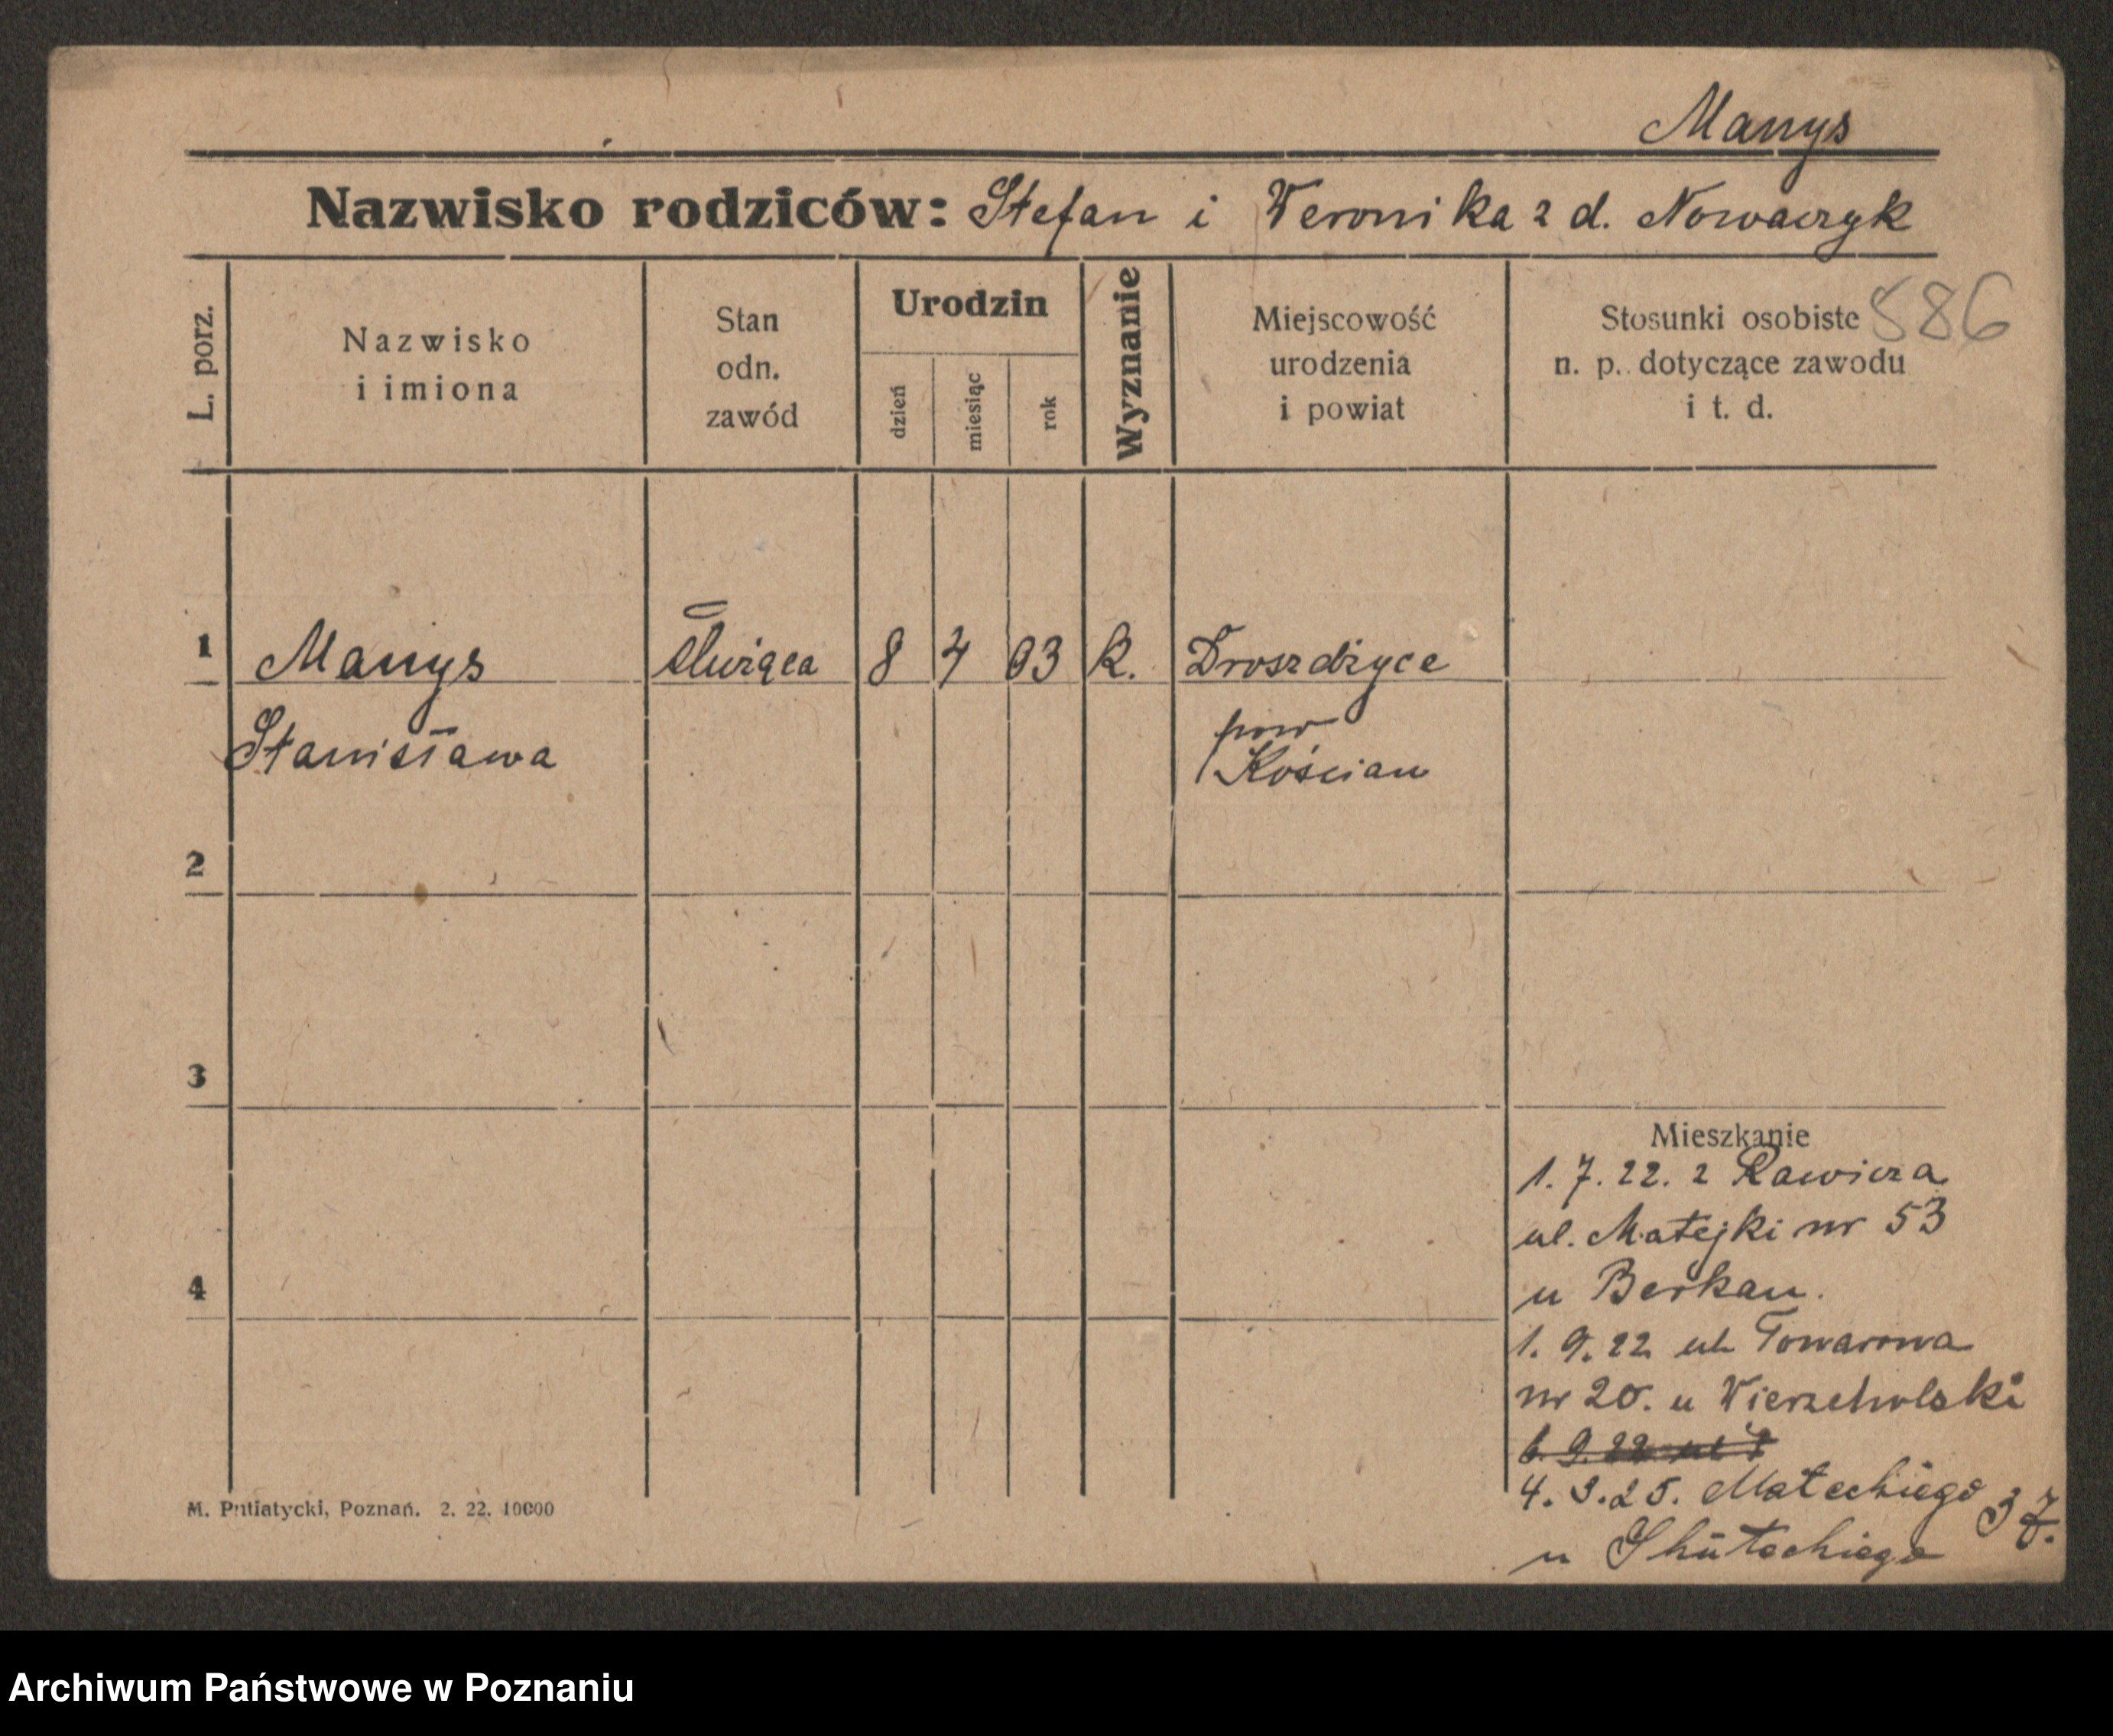 Manys
Nazwisko rodziców: Stefan i Weronika z d. Nowaczyk
L. porz.
Nazwisko
i imiona
Stan
odn.
zawód
Urodzin
dzień
miesiąc
rok
Wyznanie
Miejscowość
urodzenia
i powiat
Stosunki osobiste
n. p. dotyczące zawodu
i t. d.
586
1 Manys służąca 8 4 03 k. Droszdżyce
Stanisława
pow
Kościan
2
3
4
Mieszkanie
1. 7. 22. z Rawicza
ul. Matejki nr 53
u Berkan.
1. 9. 22 ul. Towarowa
nr 20. u Wierzcholski
4. 3. 25. Małeckiego 37.
u
M. Putiatycki, Poznań. 2. 22. 10000
Archiwum Państwowe w Poznaniu